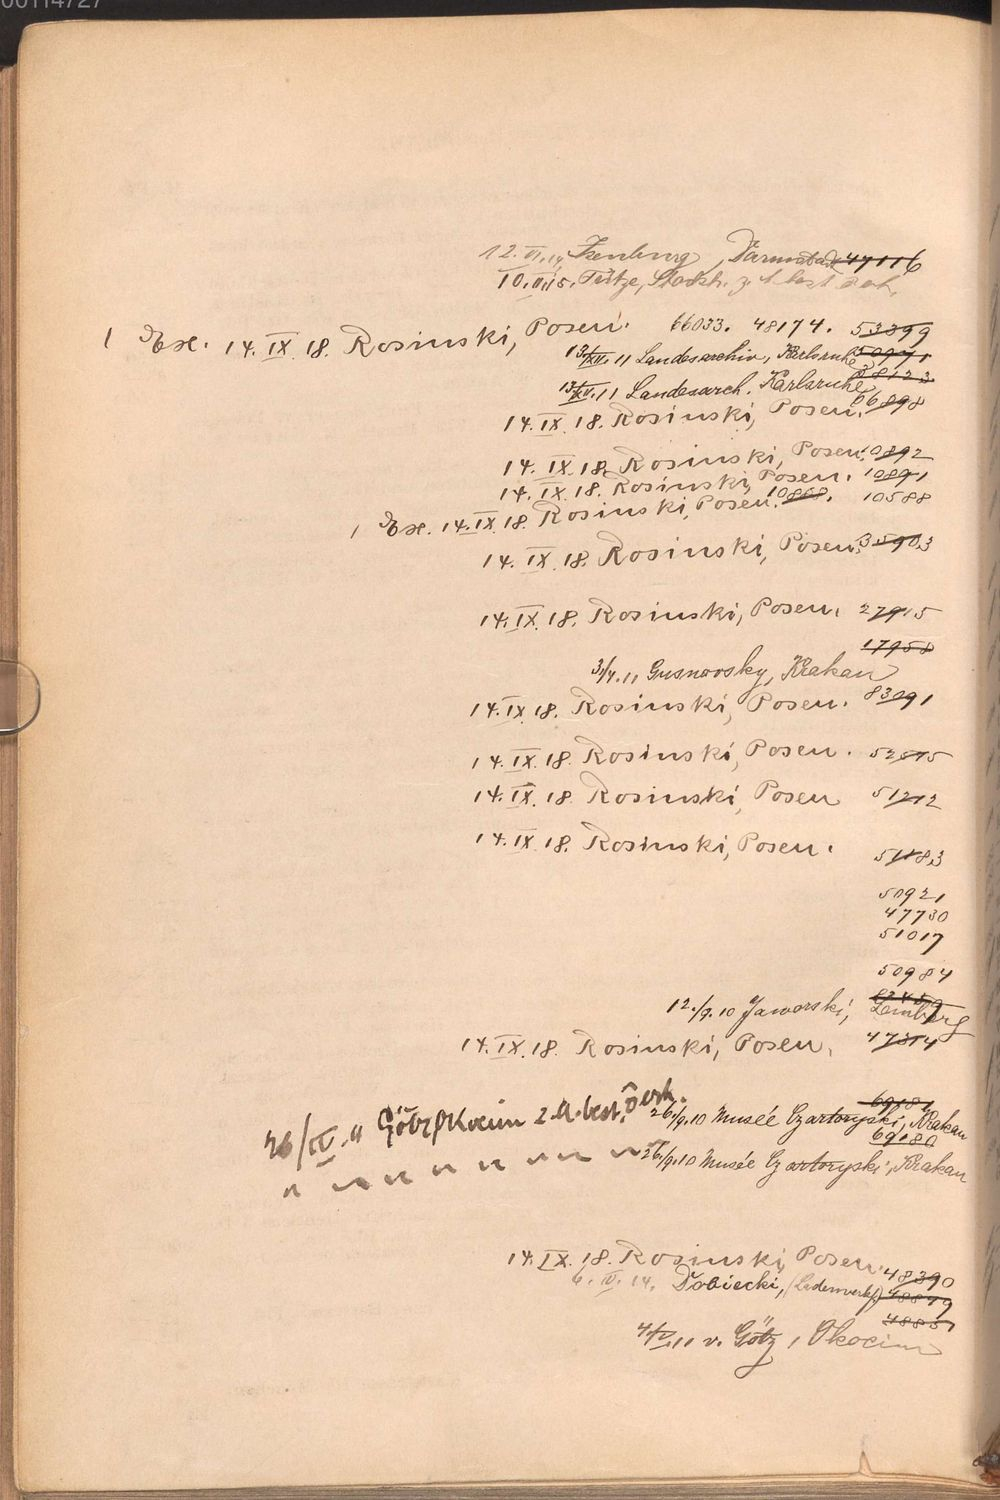 00114727
12. VI. 14 Isenburg, Darmstadt 47116
10. VII. 15. Tietze, Stockh. z. A. best
1 Ex. 14. IX. 18. Rosinski, Posen. 66033. 48174. 53399
13/XII. 11 Landesarchiv, Karlsruhe 50971
13/XII. 11 Landesarch. Karlsruhe 38123
14. IX. 18. Rosinski, Posen. 66898
14. IX. 18. Rosinski, Posen. 10892
14. IX. 18. Rosinski, Posen. 10891
1 Ex. 14. IX. 18. Rosinski, Posen. 10868. 10588
14. IX. 18. Rosinski, Posen. 35903
14. IX. 18. Rosinski, Posen. 27915
17958
3/4. 11 Gusnovsky, Krakau
14. IX. 18. Rosinski, Posen. 83091
14. IX. 18. Rosinski, Posen. 52875
14. IX. 18. Rosinski, Posen 51212
14. IX. 18. Rosinski, Posen. 51183
50921
47730
51017
50984
12./9. 10 Jaworski, Lemberg
14. IX. 18. Rosinski, Posen. 47314
69181
26/IV. 11 Götz, Okocim z. A. best. 26./9. 10 Musée Czartoryski, Krakau
69180
26./9. 10 Musée Czartoryski, Krakau
14. IX. 18. Rosinski, Posen. 48390
6. IV. 14. Dobiecki, (Ladenverkf.) 48849
4885
4/V. 11 v. Götz, Okocim